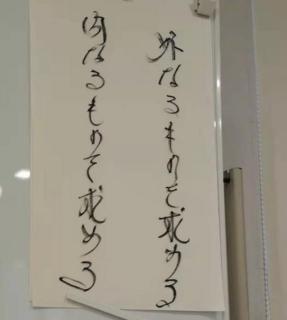 外なるものを求める
内なるものを求める